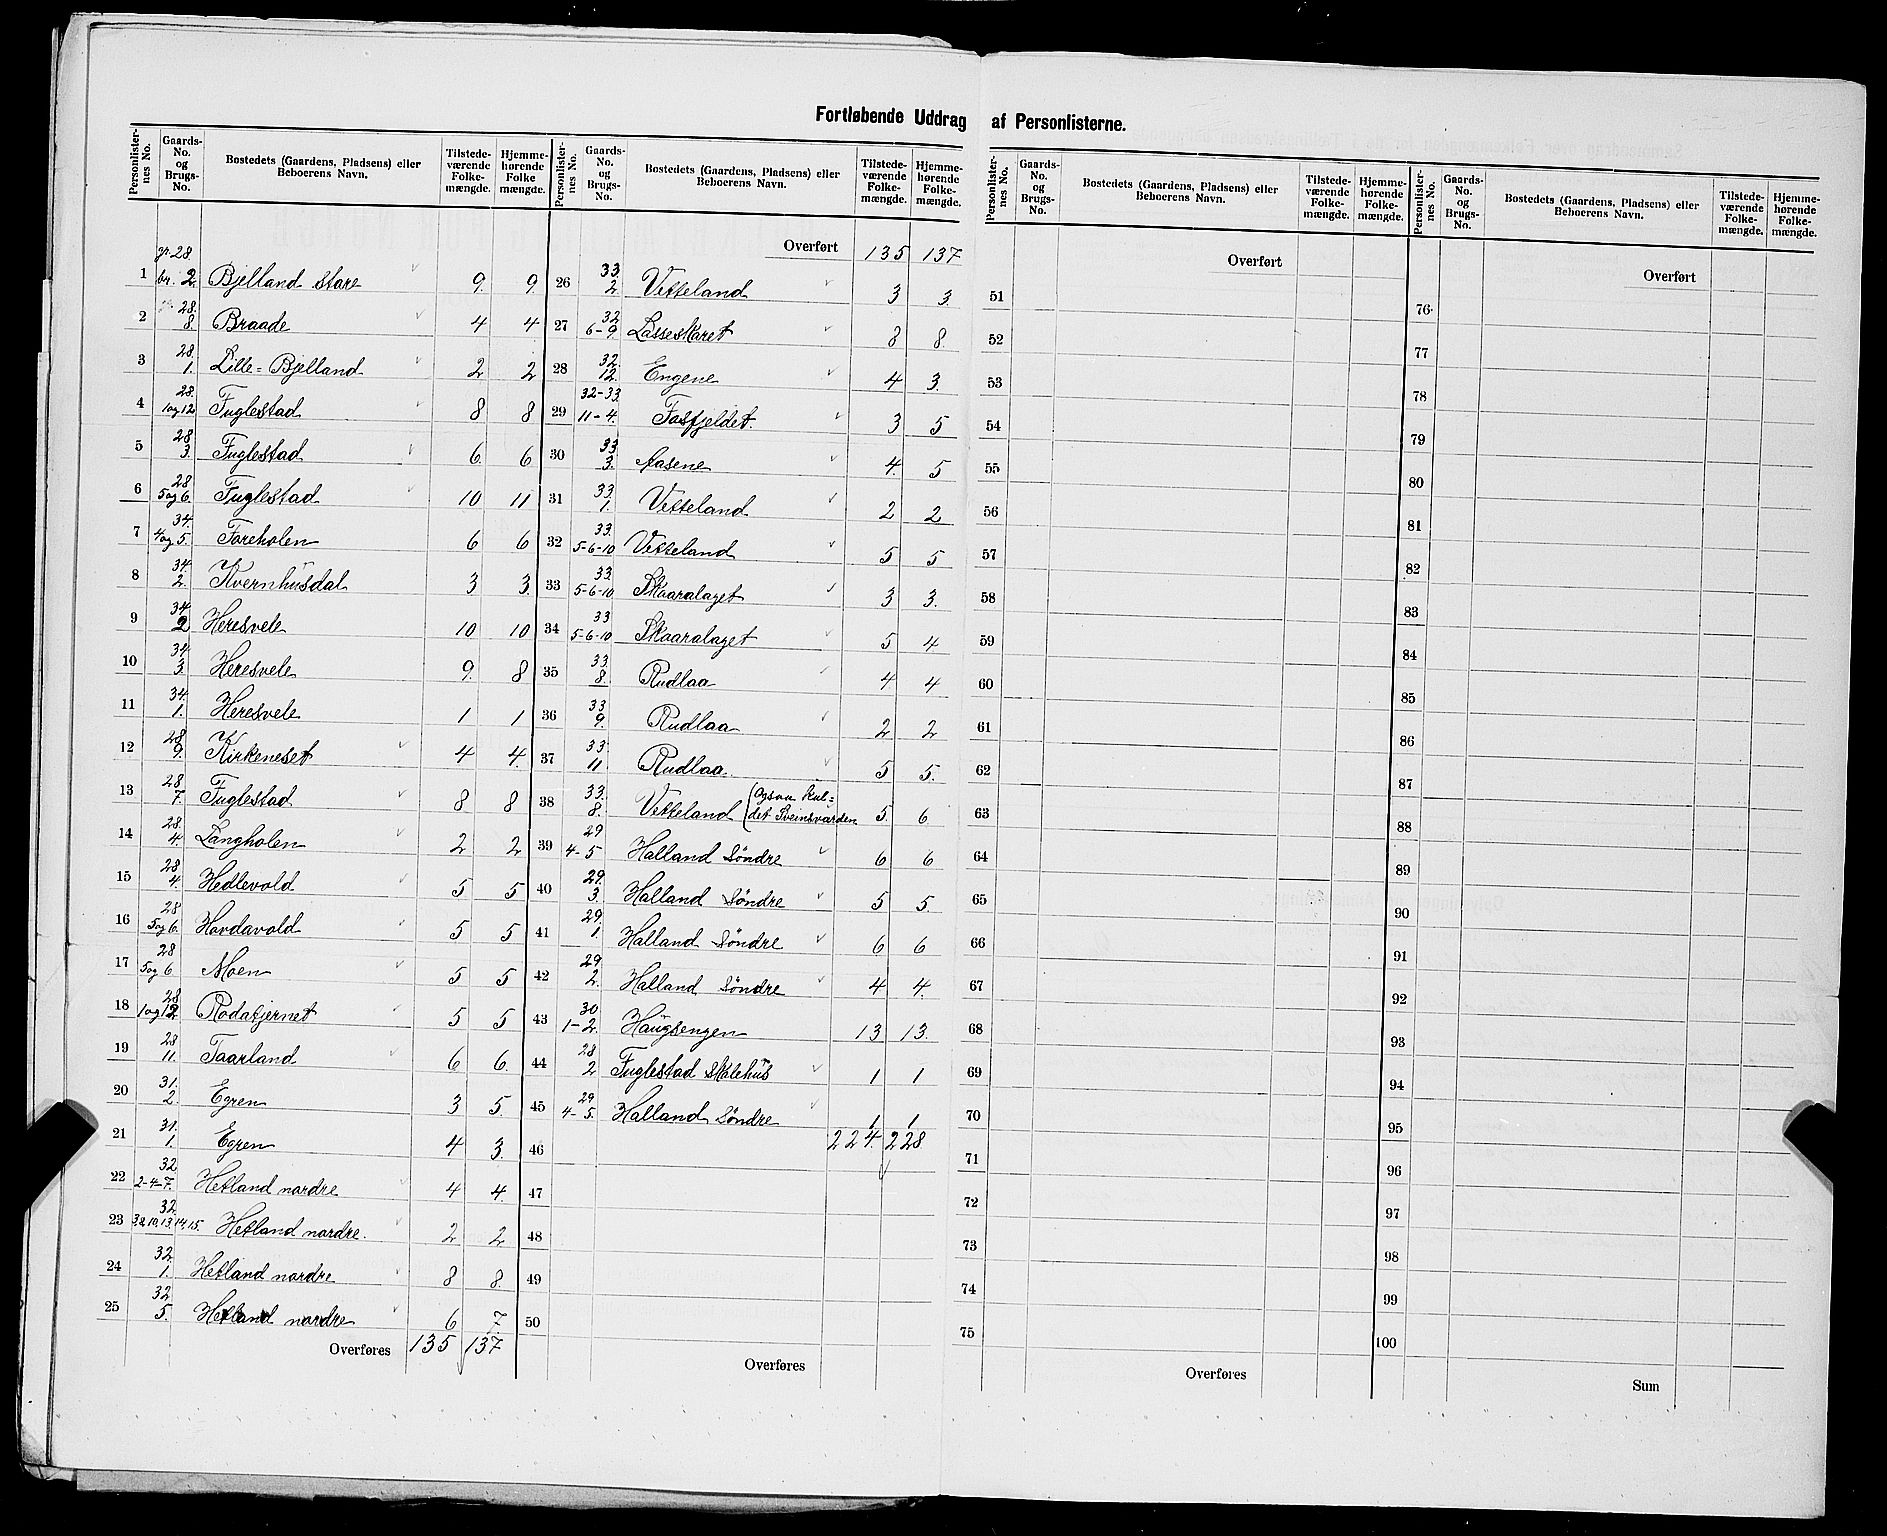 Fortløbende Uddrag af Personlisterne.
Personlister-nes No. | Gaards-No. og Brugs-No. | Bostedets (Gaardens, Pladsens) eller Beboerens Navn. | Tilstede-værende Folke-mængde. | Hjemme-hørende Folke mængde.
1 | gr. 28. br. 2. | Bjelland store | 9. | 9.
2 | 28. 8. | Braade | 4 | 4
3 | 28. 1. | Lille-Bjelland | 2 | 2
4 | 28. 1og12 | Fuglestad | 8 | 8
5 | 28 3. | Fuglestad | 6. | 6
6 | 28 5og6. | Fuglestad | 10 | 11
7 | 34. 4og5. | Foreholen | 6 | 6
8 | 34. 2. | Kvernhusdal | 3 | 3.
9 | 34 2 | Heresvele | 10 | 10
10 | 34. 3 | Heresvele | 9. | 8
11 | 34. 1. | Heresvele | 1 | 1
12 | 28 9. | Kirkeneset | 4 | 4.
13 | 28 7. | Fuglestad | 8 | 8
14 | 28. 4. | Langholen | 2 | 2
15 | 28 4. | Hedlevold | 5 | 5
16 | 28 5og6. | Hovdavold | 5 | 5
17 | 28 5og6 | Moen | 5 | 5
18 | 28 1og12 | Rodatjernet | 5 | 5
19 | 28 11. | Taarland | 6 | 6.
20 | 31. 2. | Egren | 3 | 5.
21 | 31. 1. | Egren | 4 | 3.
22 | 32 2-4-7. | Hetland nordre | 4 | 4.
23 | 32. 10.13.14.15. | Hetland nordre. | 2 | 2
24 | 32. 1. | Hetland nordre | 8 | 8.
25 | 32 5. | Hetland nordre | 6 | 7
Overføres 135 137
Personlister-nes No. | Gaards-No. og Brugs-No. | Bostedets (Gaardens, Pladsens) eller Beboerens Navn. | Tilstede-værende Folke-mængde. | Hjemme-hørende Folke-mængde.
Overført 135 137
26 | 33. 2. | Vetteland | 3 | 3.
27 | 32 6-9. | Lasseskaret | 8 | 8.
28 | 32. 12. | Engene | 4 | 3.
29 | 32-33. 11-4. | Fosfjeldet. | 3 | 5
30 | 33 3. | Aasene | 4. | 5
31 | 33. 1. | Vetteland | 2 | 2
32 | 33. 5-6-10 | Vetteland | 5 | 5
33 | 33. 5-6-10 | Skaaralaget | 3 | 3.
34 | 33 5-6-10 | Skaaralaget | 5 | 4
35 | 33. 8. | Rudlaa | 4 | 4
36 | 33 9. | Rudlaa | 2 | 2
37 | 33 11 | Rudlaa. | 5 | 5.
38 | 33. 8. | Vetteland (Ogsaa kal-det Sveinsvarden | 5. | 6
39 | 29 4-5 | Halland Søndre | 6 | 6
40 | 29. 3. | Halland Søndre | 5 | 5.
41 | 29. 1. | Halland Søndre | 6 | 6
42 | 29. 2. | Halland Søndre | 4 | 4.
43 | 30 1-2. | Haugsengen | 13 | 13.
44 | 28 2 | Fuglestad Skolehus | 1 | 1
45 | 29 4-5. | Halland Søndre | 1 | 1
46 | 224. 228
47
48
49
50
Overføres
Personlister-nes No. | Gaards-No. og Brugs-No. | Bostedets (Gaardens, Pladsens) eller Beboerens Navn. | Tilstede-værende Folke-mængde. | Hjemme-hørende Folke-mængde.
Overført
51
52
53
54
55
56
57
58
59
60
61
62
63
64
65
66
67
68
69
70
71
72
73
74
75
Overføres
Personlister-nes No. | Gaards-No. og Brugs-No. | Bostedets (Gaardens, Pladsens) eller Beboerens Navn. | Tilstede-værende Folke-mængde. | Hjemme-hørende Folke-mængde.
Overført
76
77
78
79
80
81
82
83
84
85
86
87
88
89
90
91
92
93
94
95
96
97
98
99
100
Sum